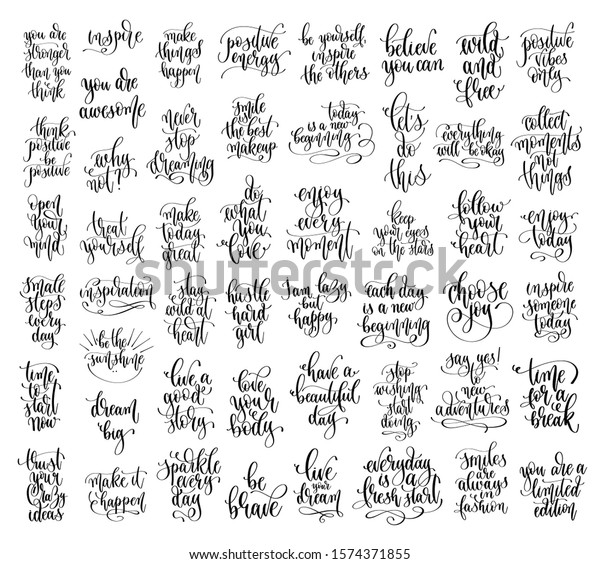 you are
stronger
than you
think
inspire
make
things
happen
positive
energy
be yourself,
inspire
the others
believe
you can
wild
and
free
positive
vibes
only
you are
awesome
think
positive
be
positive
why
not?
never
stop
dreaming
smile
is the best
makeup
today
is a new
beginning
let's
do
this
everything
will be okay
collect
moments
not
things
open
your
mind
treat
yourself
make
today
great
do
what
you
love
enjoy
every
moment
keep
your eyes
on the stars
follow
your
heart
enjoy
today
small
steps
every
day
inspiration
be the
sunshine
stay
wild at
heart
hustle
hard
girl
I am lazy
but
happy
each day
is a new
beginning
choose
joy
inspire
someone
today
time
to
start
now
dream
big
live a
good
story
love
your
body
have a
beautiful
day
stop
wishing
start
doing
say yes!
to
new
adventures
time
for a
break
trust
your
crazy
ideas
make it
happen
sparkle
every
day
be
brave
live
your
dream
everyday
is a
fresh start
smiles
are
always
in
fashion
you are a
limited
edition
shutterstock
shutterstock
shutterstock
www.shutterstock.com · 1574371855